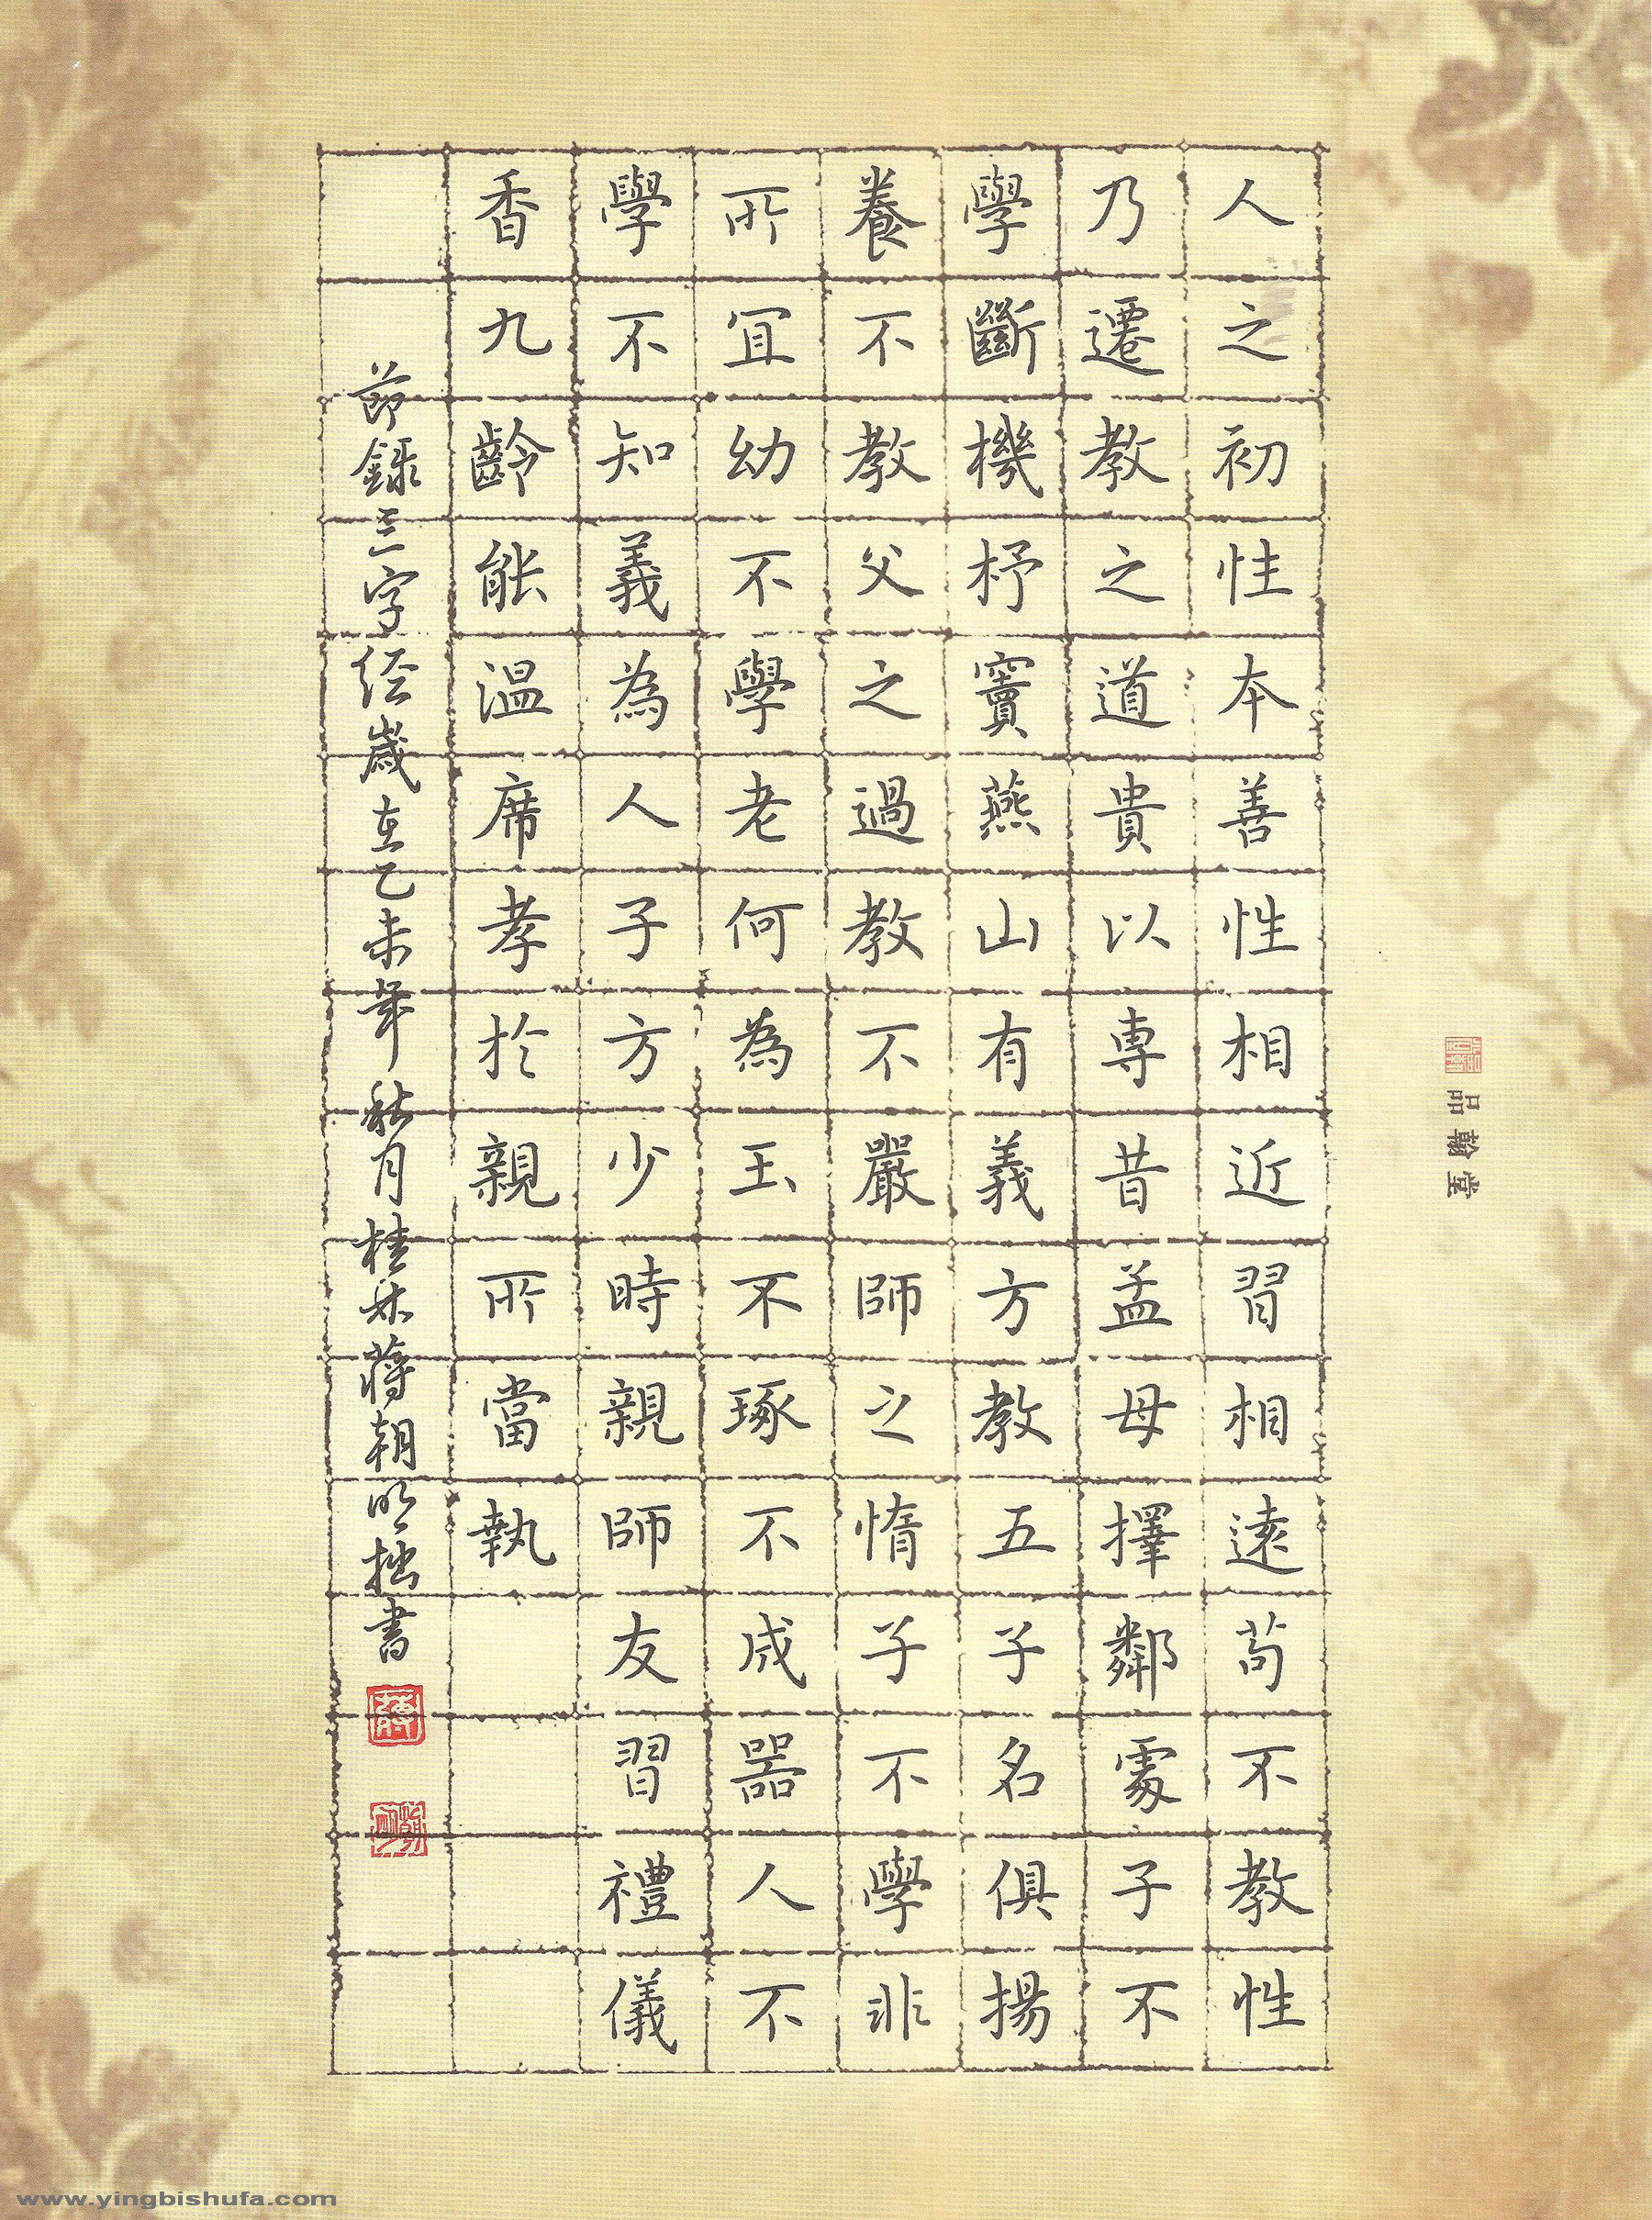 人之初性本善性相近習相遠苟不教性
乃遷教之道貴以專昔孟母擇鄰處子不
學斷機杼竇燕山有義方教五子名俱揚
養不教父之過教不嚴師之惰子不學非
所宜幼不學老何為玉不琢不成器人不
學不知義為人子方少時親師友習禮儀
香九齡能温席孝於親所當執
節錄三字经歲在乙未年秋月桂林蔣朝明拙書
蔣
朝明
品翰堂
www.yingbishufa.com